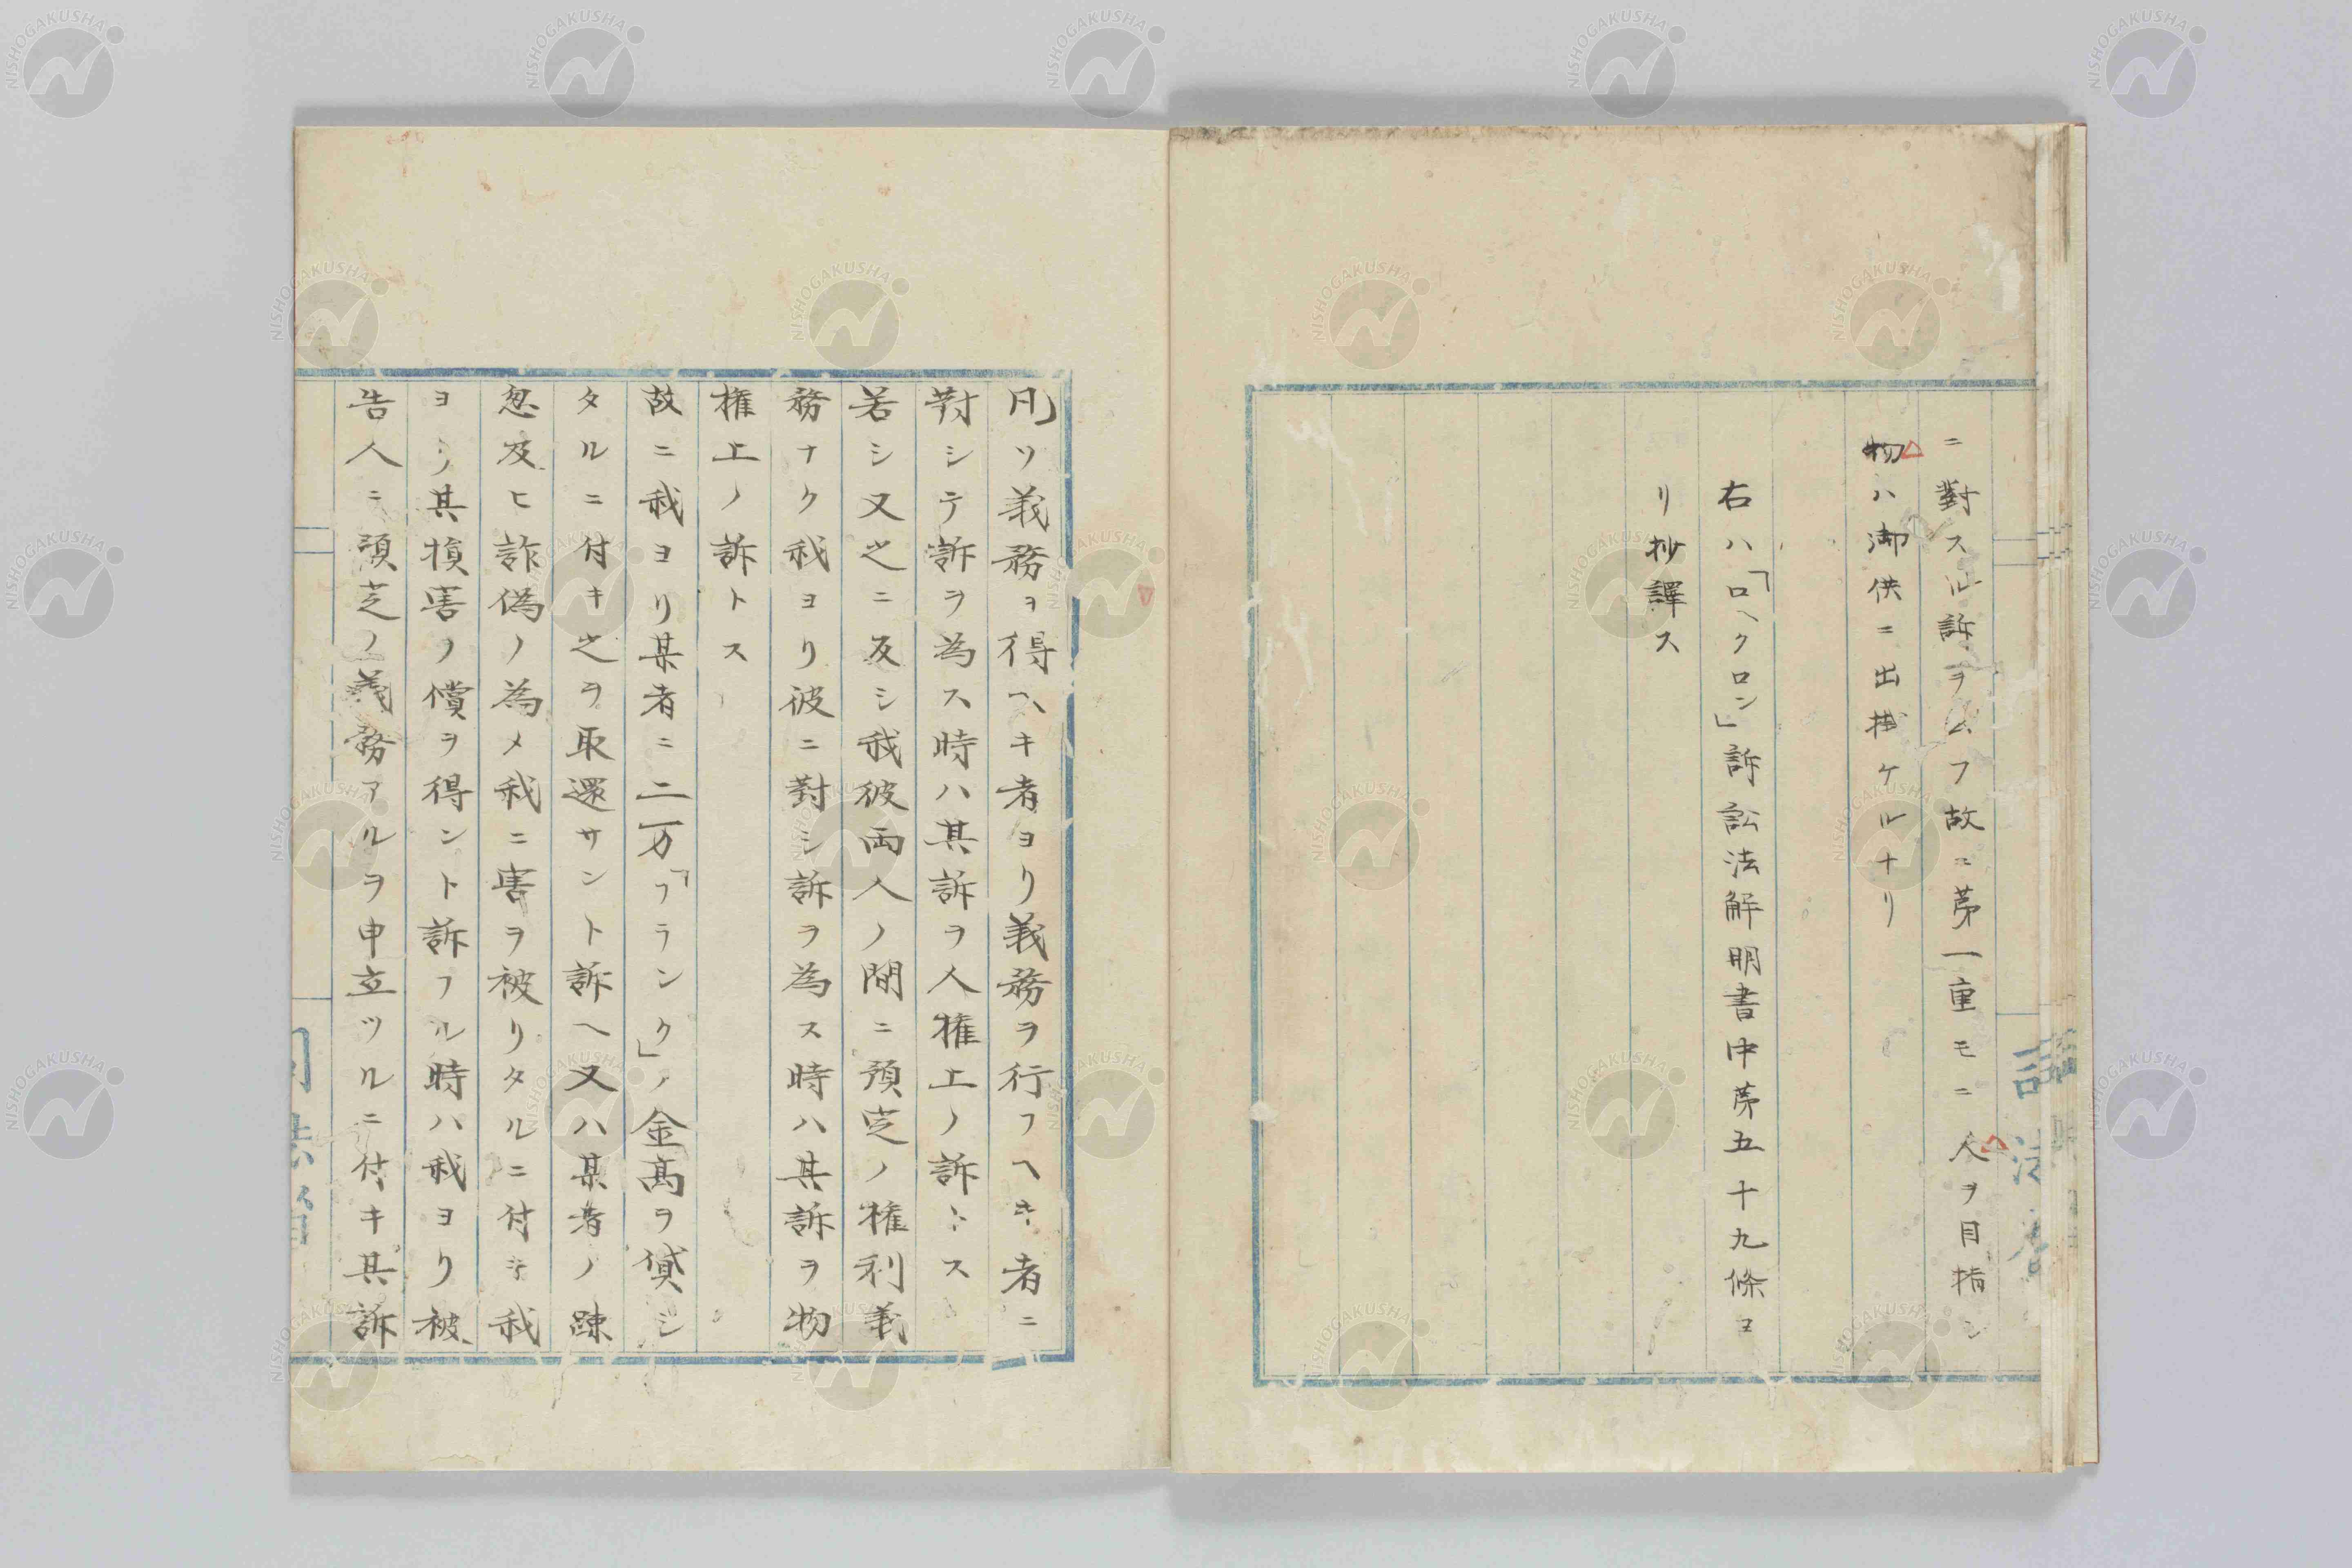 ニ對スル訴ヲ云フ故ニ第一重モニ人ヲ目指シ
物ハ御供ニ出掛ケルナリ
右ハ「ロヘクロン」訴訟法解明書中第五十九條ヨ
リ抄譯ス
凡ソ義務ヲ得ヘキ者ヨリ義務ヲ行フヘキ者ニ
對シテ訴ヲ為ス時ハ其訴ヲ人權上ノ訴トス
若シ又之ニ反シ我彼両人ノ間ニ預定ノ權利義
務ナク我ヨリ彼ニ對シ訴ヲ為ス時ハ其訴ヲ物
權上ノ訴トス
故ニ我ヨリ某者ニ二万「フランク」ノ金高ヲ貸シ
タルニ付キ之ヲ取還サント訴ヘ又ハ某者ノ疎
忽及ヒ詐偽ノ為メ我ニ害ヲ被リタルニ付キ我
ヨリ其損害ノ償ヲ得ント訴フル時ハ我ヨリ被
告人ニ預定ノ義務アルヲ申立ツルニ付キ其訴
NISHOGAKUSHA